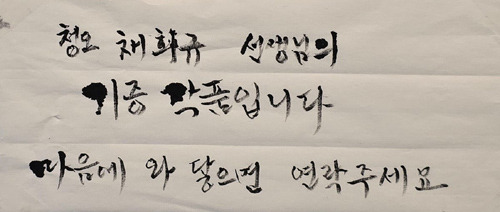 청오 채화규 선생님의
기증 작품입니다
마음에 와 닿으면 연락주세요